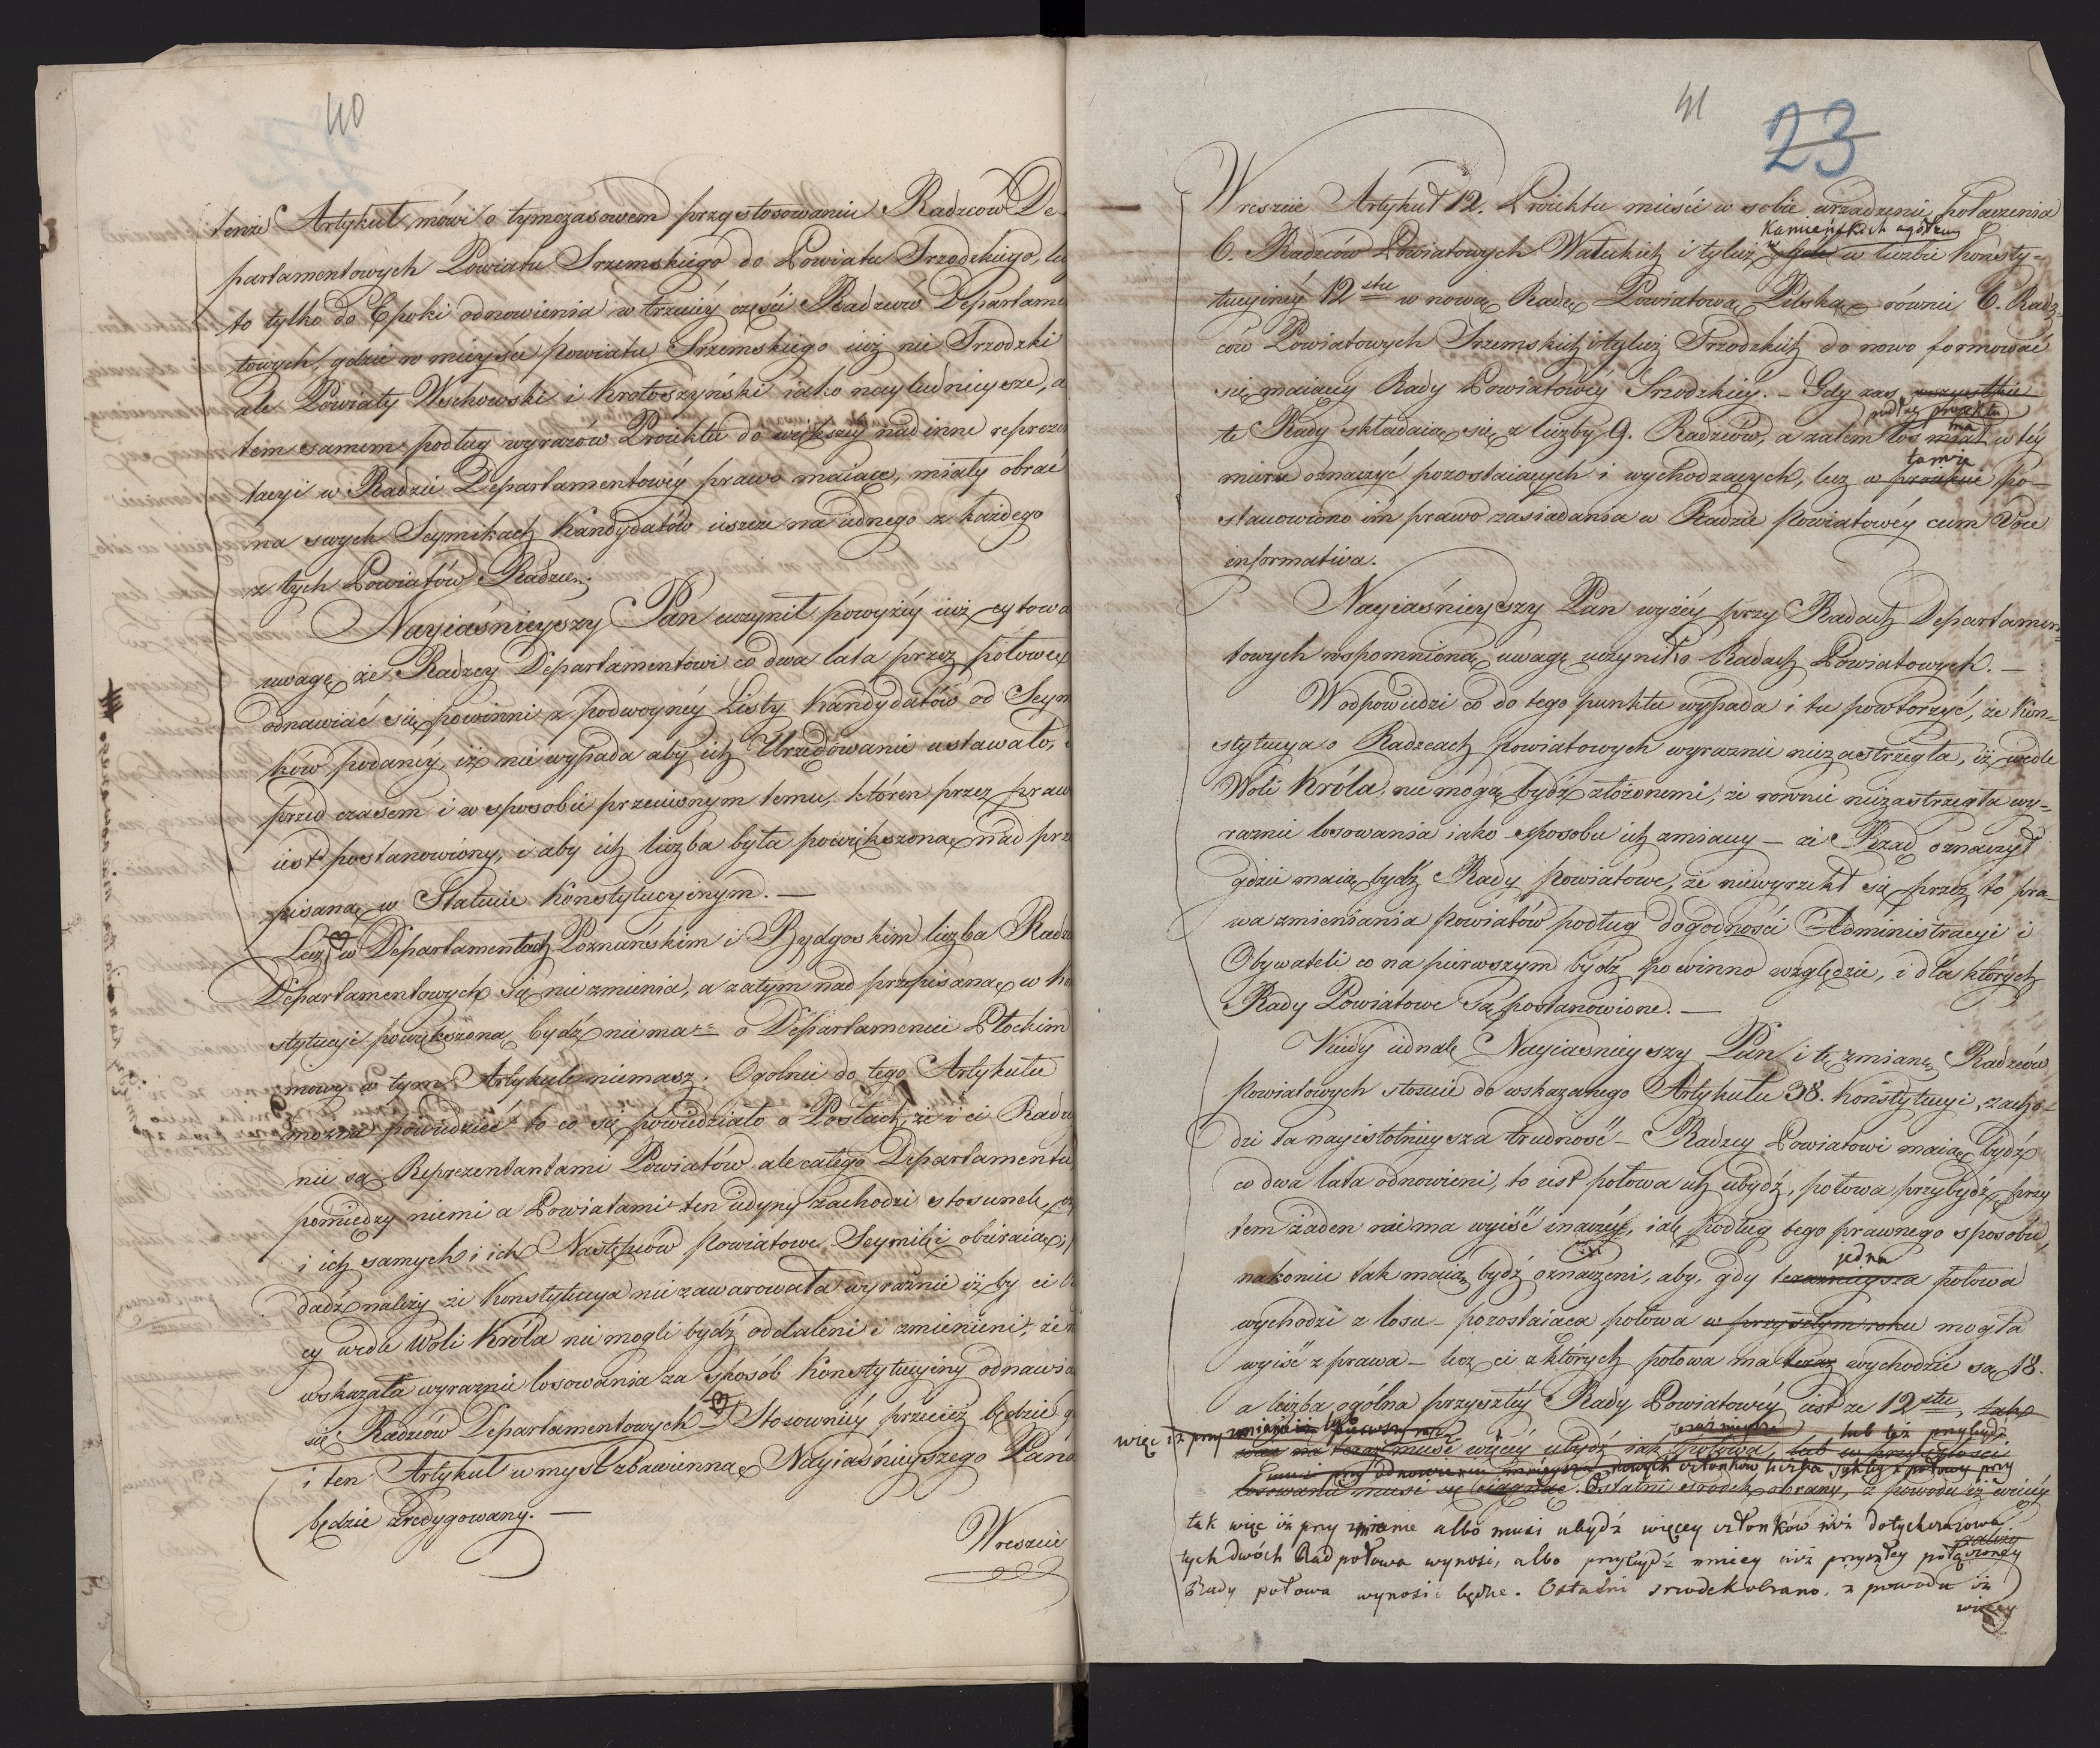 40
tenże Artykuł mówi o tymczasowem przystosowaniu Radzców De-
partamentowych Powiatu Srzemskiego do Powiatu Srzodzkiego,
to tylko do Epoki odnowienia w trzeciey części Radzców Departame
towych, gdzie w mieysce Powiatu Srzemskiego iuż nie Srzodzki
ale Powiaty Wschowski i Krotoszyński iako nayludnieysze, a
tem samem podług wyrazów Proiektu do większey nad inne repreze
tacyi w Radzie Departamentowéy prawo maiące, miały obrać
na swych Seymikach Kandydatów ieszcze na iednego z każdego
z tych Powiatów Radzcę.
Nayiaśnieyszy Pan uczynił powyżéy iuż cytowa
uwagę, że Radzcy Departamentowi co dwa lata przez połowę
odnawiać się powinni z podwoynéy Listy Kandydatów od Seym
ków podanéy, iż nie wypada aby ich Urzędowanie ustawało,
przed czasem i w sposobie przeciwnym temu, któren przez praw
iest postanowiony, i aby ich liczba była powiększoną nad prze
pisaną w Statucie Konstytucyinym. —
Lecz w Departamentach Poznańskim i Bydgoskim liczba Radz
Departamentowych się nie zmienia, a zatym nad przepisaną w Kon
stytucyi powiększoną bydź nie ma — o Departamencie Płockim
mowy w tym Artykule niemasz. Ogolnie do tego Artykułu
można powiedzieć to co się powiedziało o Posłach, że i ci Radz
nie są Reprezentantami Powiatów ale całego Departamentu
pomiędzy niemi a Powiatami ten iedyny zachodzi stosunek,
i ich samych i ich Następców Powiatowe Seymiki obieraią,
dadź należy że Konstytucya nie zawarowała wyraźnie iżby ci
cy wedle Woli Króla nie mogli bydź oddaleni i zmienieni, że
wskazała wyraźnie losowania za sposób Konstytucyiny odnawia
się Radzców Departamentowych — Stosowniéy przecież będzie g
i ten Artykuł w myśl zbawienną Nayiaśnieyszego Pana
będzie zredygowany. —
Wreszcie
41
23
Wreszcie Artykuł 12. Proiektu mieści w sobie urządzenie połączenia
Kamieńskich ogółem
6. Radzców Powiatowych Wałeckich i tyluż w liczbie Konsty-
tucyinéy 12stu w nową Radę Powiatową Pilską — równie 6. Radz-
ców Powiatowych Srzemskich i tyluż Srzodzkich do nowo formować
się maiącey Rady Powiatowéy Srzodzkiéy. — Gdy zaś wszystkie
podług projektu
te Rady składaią się z liczby 9. Radzców, a zatem los miał ma w téy
tamże
mierze oznaczyć pozostaiących i wychodzących, lecz w proiekcie po-
stanowiono im prawo zasiadania w Radzie Powiatowéy cum Voce
informativa.
Nayiaśnieyszy Pan wyżéy przy Radach Departamen-
towych wspomnioną uwagę uczynił o Radach Powiatowych. —
W odpowiedzi co do tego punktu wypada i tu powtorzyć, że Kon-
stytucya o Radzcach powiatowych wyraznie nie zastrzegła, iż wedle
Woli Króla, nie mogą bydź złożonemi, że rownie niezastrzegła wy-
raznie losowania iako sposobu ich zmiany — że Rząd oznaczył
gdzie maią bydź Rady Powiatowe, że niewyrzekł się przez to pra-
wa zmieniania Powiatów podług dogodności Administracyi i
Obywateli co na pierwszym bydź powinno względzie, i dla których
Rady Powiatowe są postanowione. —
Kiedy iednak Nayiaśnieyszy Pan i tę zmianę Radzców
Powiatowych stosuie do wskazanego Artykułu 38. Konstytucyi, zacho-
dzi ta nayistotnieysza trudność — Radzcy Powiatowi maią bydź
co dwa lata odnowieni, to iest połowa ich ubydź, połowa przybydź, przy
tem żaden nie ma wyiść inaczéy, iak podług tego prawnego sposobu,
nakoniec tak maią bydź oznaczeni, aby, gdy terazniejsza jedna połowa
wychodzi z losu — pozostaiąca połowa w przyszłym roku mogła
wyiść z prawa — lecz ci z których połowa ma teraz wychodzić są 18.
a liczba ogólna przyszłéy Rady Powiatowéy iest ze 12stu, tak
więc iż przy zmianie lub też przybydź
teraz musi więcéy ubydź iak połowa, lub w przyszłości
nowych członków liczba
losowaniu musi się ściągnąć. Ostatni srodek obrany, z powodu iż więcéy
tak więc iż przy zmianie albo musi ubydź więcey członków niż dotychczasowa
tych dwóch Rad połowa wynosi, albo przybydź mniey niż przyszłey połączoney
Rady połowa wynosić będzie. Ostatni srzodek obrano, z powodu iż
więcey